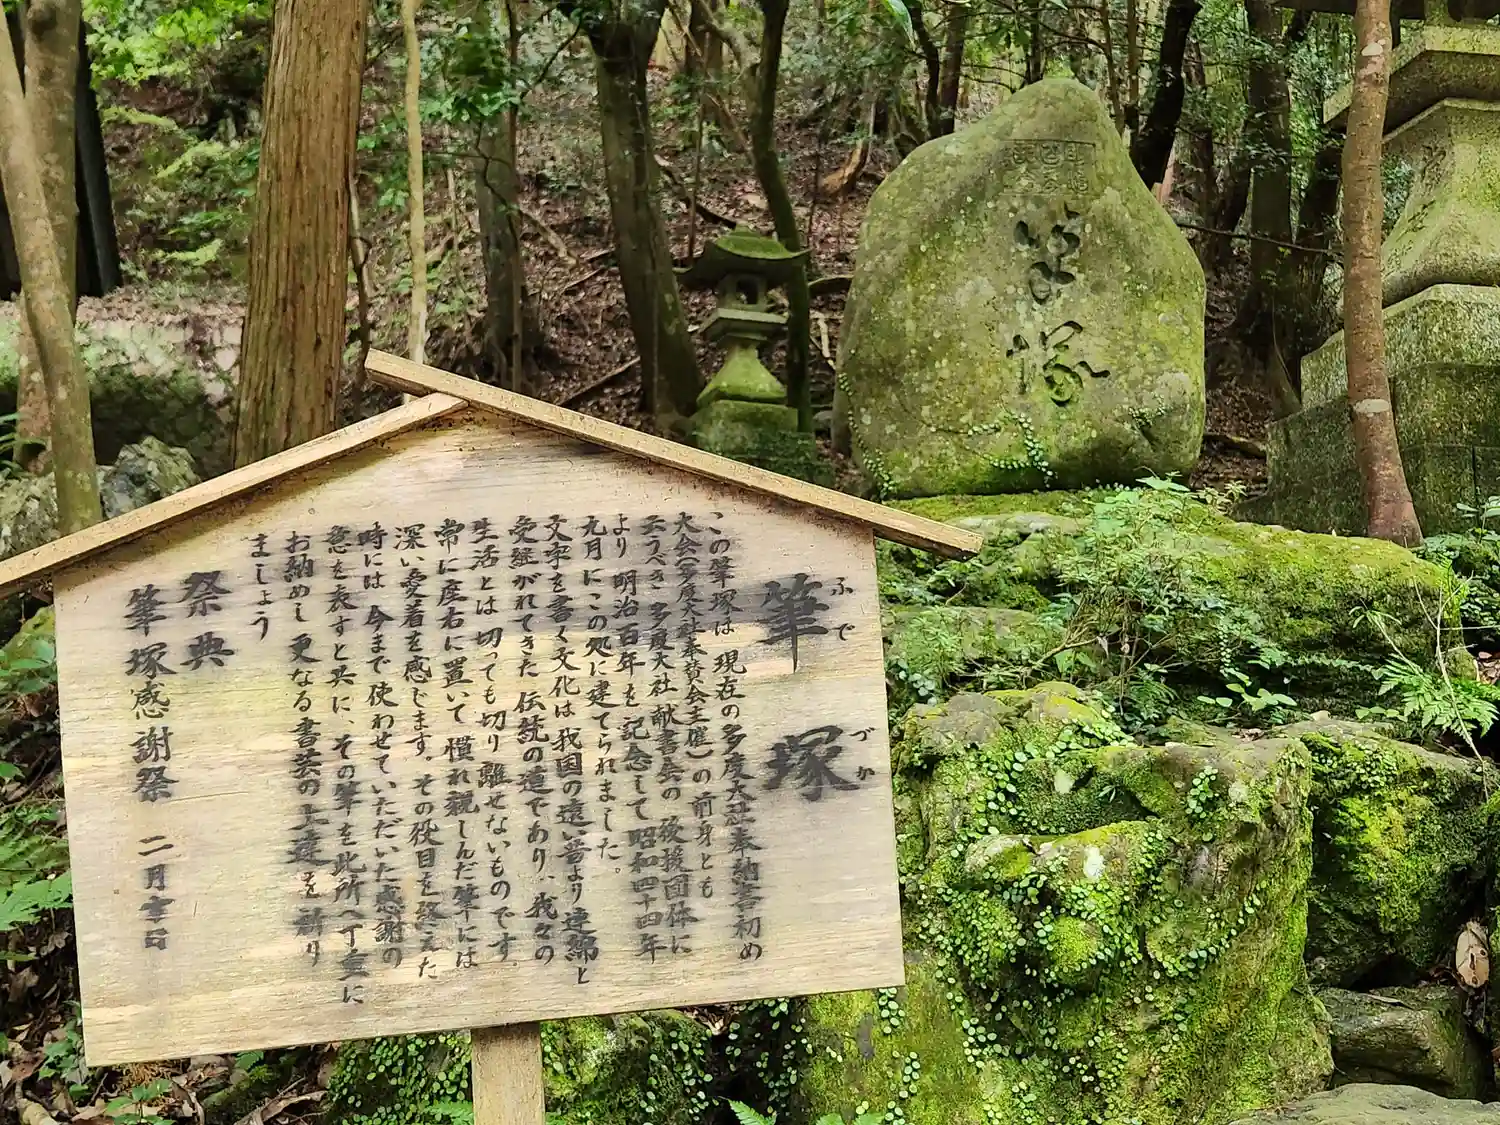 筆塚
ふでづか
この筆塚は 現在の多度大社奉納書初め
大会(多度大社奉賛会主催)の前身とも
云うべき 多度大社献書会の 後援団体に
より 明治百年を記念して昭和四十四年
九月にこの処に建てられました。
文字を書く文化は我国の遠い昔より連綿と
受継がれてきた伝統の道であり、我々の
生活とは切っても切り離せないものです。
常に座右に置いて慣れ親しんだ筆には
深い愛着を感じます。その役目を終えた
時には 今まで使わせていただいた感謝の
意を表すと共に、その筆を此所へ丁重に
お納めし 更なる書芸の上達を祈り
ましょう
祭典
筆塚感謝祭 二月 日
筆塚